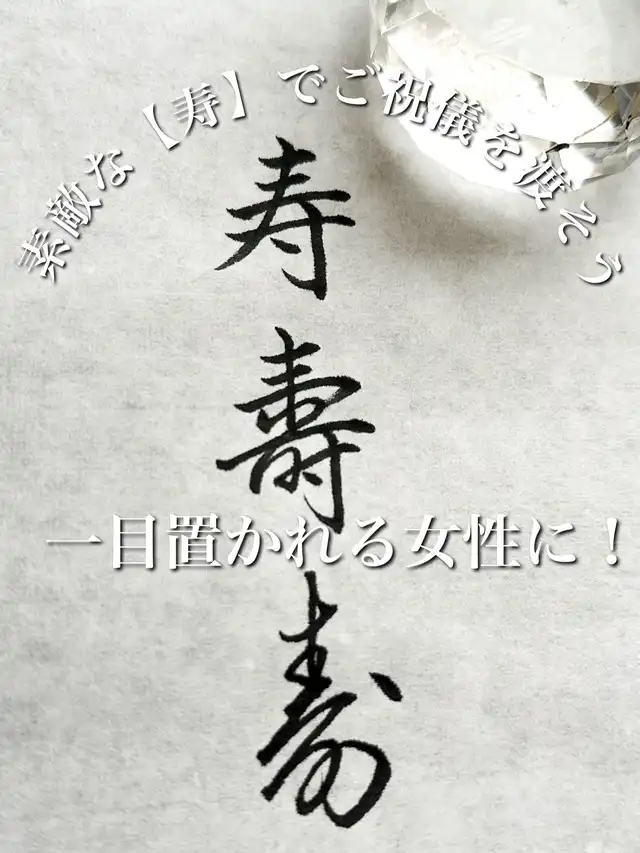 素敵な【寿】でご祝儀を渡そう
寿
壽
寿
一目置かれる女性に！